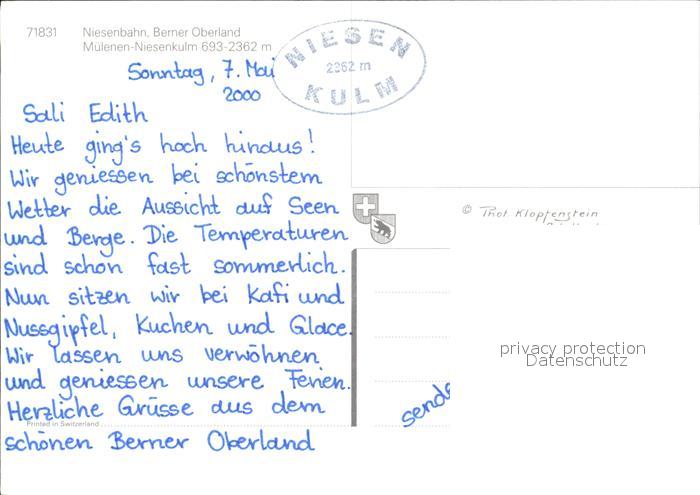 71831 Niesenbahn, Berner Oberland
Mülenen-Niesenkulm 693-2362 m
NIESEN
2362 m
KULM
Sonntag, 7. Mai
2000
Sali Edith
Heute ging's hoch hinaus!
Wir geniessen bei schönstem
Wetter die Aussicht auf Seen
und Berge. Die Temperaturen
sind schon fast sommerlich.
Nun sitzen wir bei Kafi und
Nussgipfel, Kuchen und Glace.
Wir lassen uns verwöhnen
und geniessen unsere Ferien.
Herzliche Grüsse aus dem
Printed in Switzerland
schönen Berner Oberland
© Phot. Klopfenstein
sende
privacy protection
Datenschutz